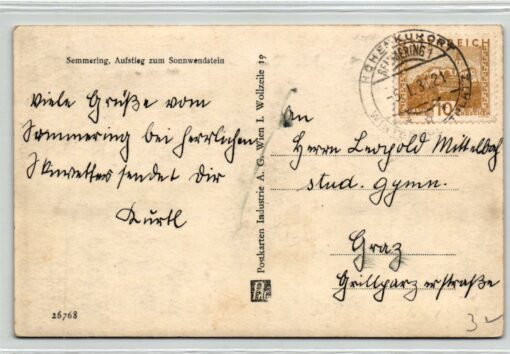 Semmering, Aufstieg zum Sonnwendstein
Viele Grüße vom
Semmering bei herrlichem
Skiwetter sendet Dir
Kurtl
Postkarten Industrie A. G. Wien I. Wollzeile 19
An
Herrn Leopold Mittelbach
stud. gymn.
Graz
Grillparzerstraße
HÖHENKURORT
SEMMERING 1
REICH
10
26768